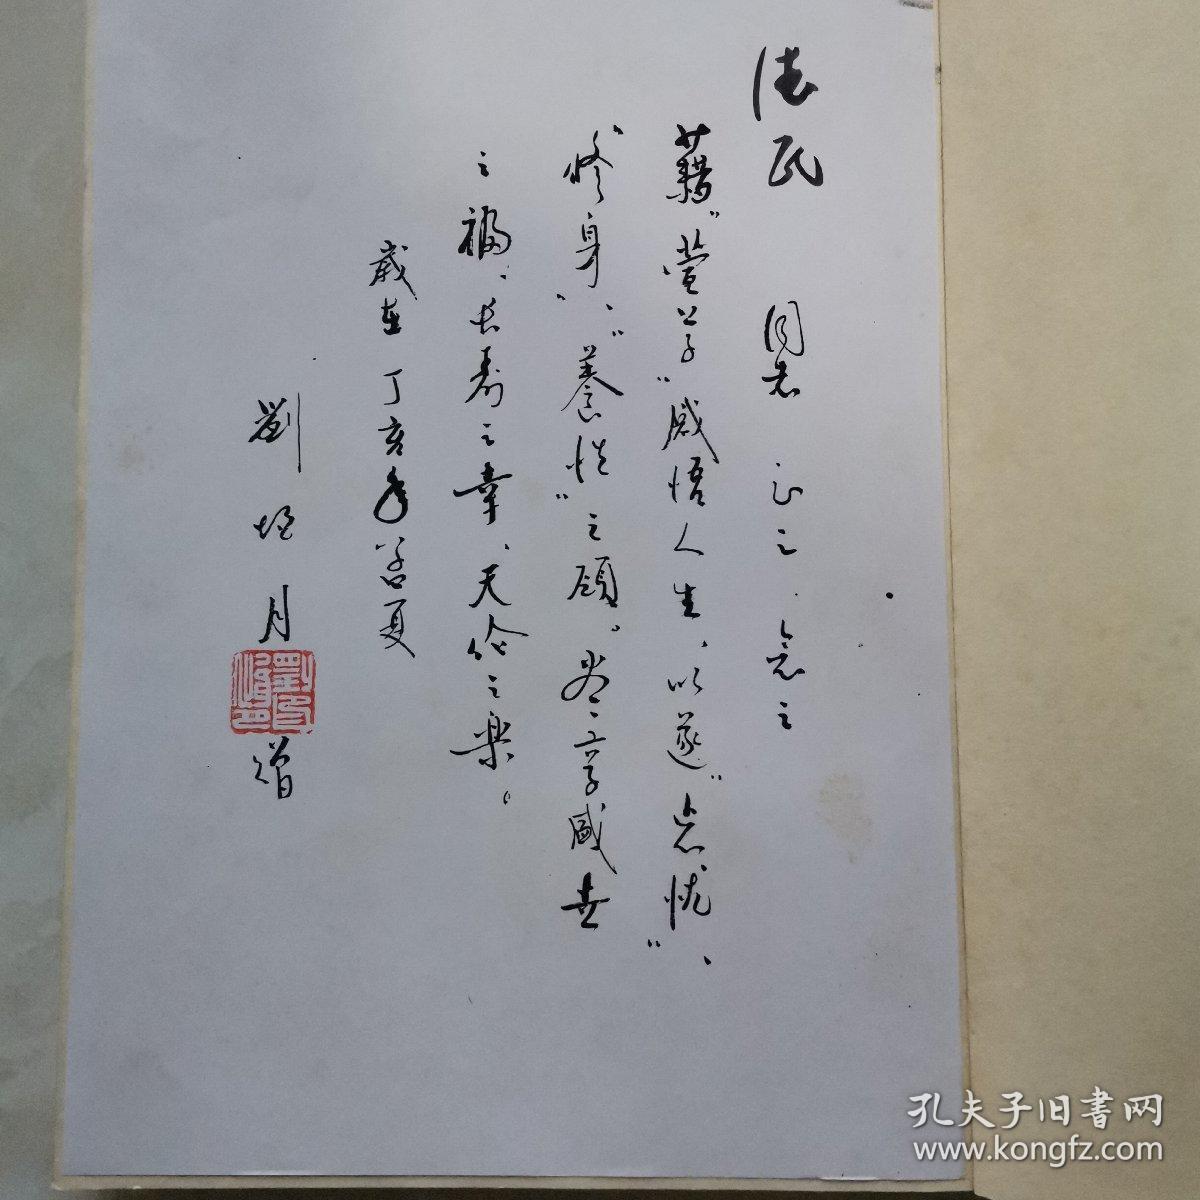 德民 同志 正之 念之
藉“萱草”感悟人生、以遂“忘忧”、
“修身”、“養性”之願。尽享盛世
之福、长寿之幸、天伦之樂。
歲在丁亥年首夏
劉 月
贈
孔夫子旧书网
www.kongfz.com